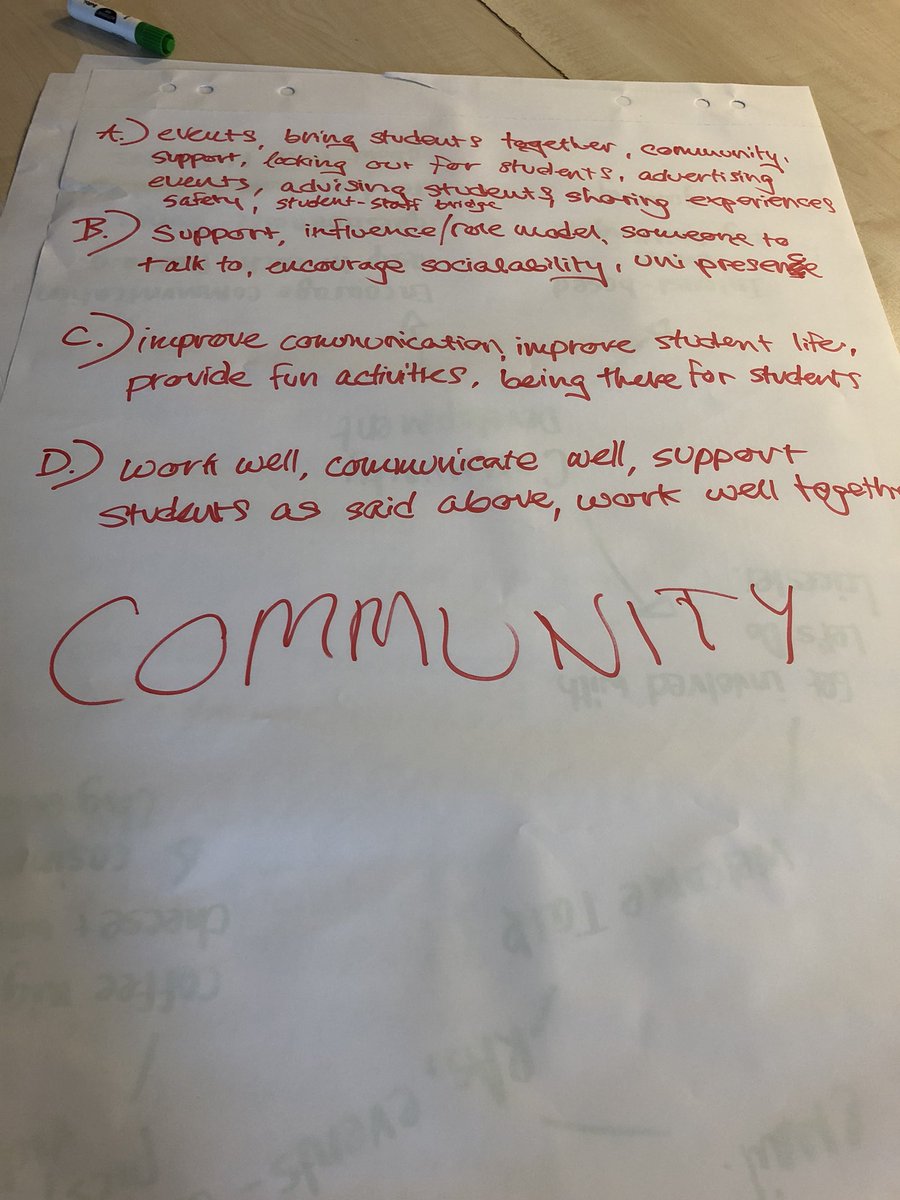 A.) events, bring students together, community,
support, looking out for students, advertising
events, advising students, sharing experiences
safety, student-staff bridge
B.) support, influence/role model, someone to
talk to, encourage socialability, uni presence
C.) improve communication, improve student life,
provide fun activities, being there for students
D.) work well, communicate well, support
students as said above, work well togeth
COMMUNITY